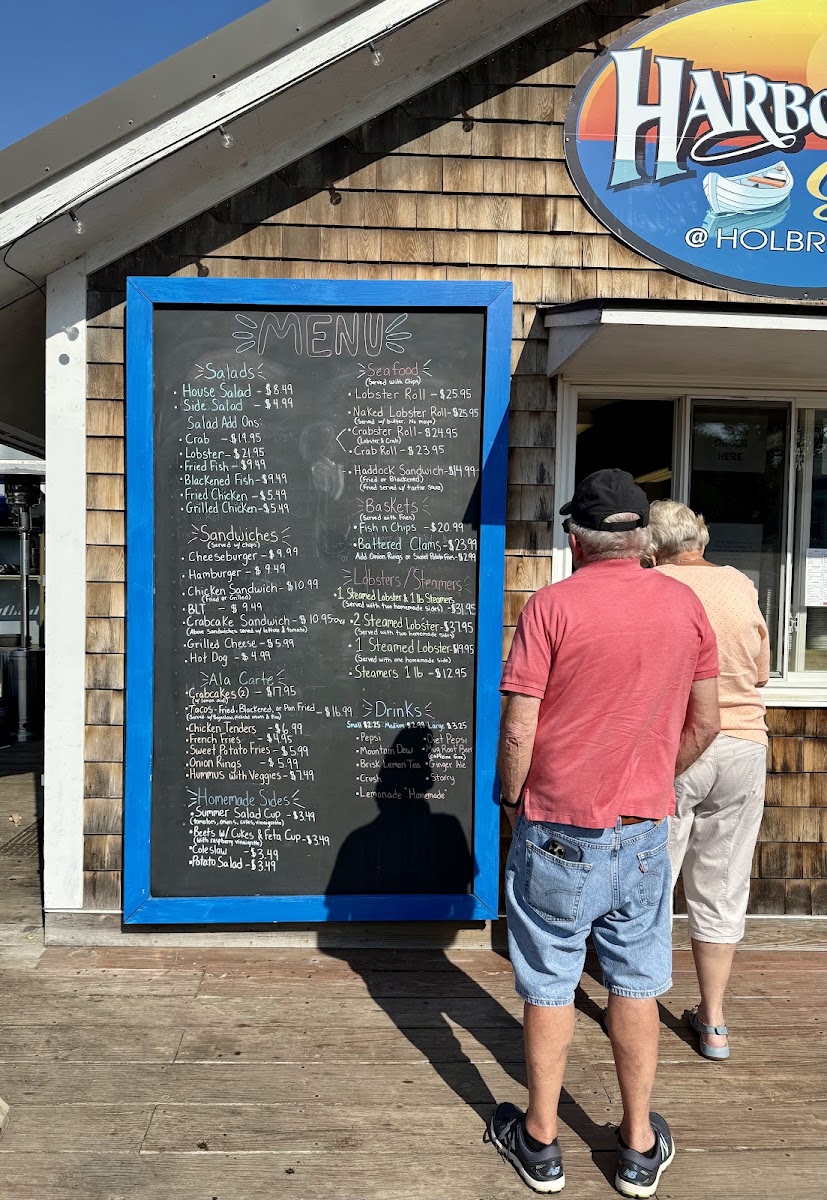 HARBO
@ HOLBR
ORDER
HERE
MENU
Salads
• House Salad - $8.49
• Side Salad - $4.99
Salad Add Ons:
• Crab - $19.95
• Lobster - $21.95
• Fried Fish - $9.49
• Blackened Fish - $9.49
• Fried Chicken - $5.49
• Grilled Chicken - $5.49
Sandwiches
(Served w/ chips)
• Cheeseburger - $9.99
• Hamburger - $9.49
• Chicken Sandwich - $10.99
(Fried or Grilled)
• BLT - $9.49
• Crabcake Sandwich - $10.95
(Above Sandwiches served w/ lettuce & tomato)
• Grilled Cheese - $5.99
• Hot Dog - $4.99
Ala Carte
• Crabcakes (2) - $17.95
• Tacos - Fried, Blackened, or Pan Fried - $16.99
• Chicken Tenders - $6.99
• French Fries - $4.95
• Sweet Potato Fries - $5.99
• Onion Rings - $5.99
• Hummus with Veggies - $7.49
Homemade Sides
• Summer Salad Cup - $3.49
(tomatoes, onions, cukes, vinaigrette)
• Beets w/ Cukes & Feta Cup - $3.49
(with raspberry vinaigrette)
• Coleslaw - $3.49
• Potato Salad - $3.49
Seafood
(Served with Chips)
• Lobster Roll - $25.95
• Naked Lobster Roll - $25.95
(Served w/ butter. No mayo)
• Crabster Roll - $24.95
(Lobster & Crab)
• Crab Roll - $23.95
• Haddock Sandwich - $14.99
(Fried or Blackened)
(Fried served w/ tartar sauce)
Baskets
(Served with Fries)
• Fish n Chips - $20.99
• Battered Clams - $23.99
Add Onion Rings or Sweet Potato Fries - $2.99
Lobsters/Steamers
• 1 Steamed Lobster & 1 lb Steamers
(Served with two homemade sides) - $31.95
• 2 Steamed Lobster - $37.95
(Served with two homemade sides)
• 1 Steamed Lobster - $19.95
(Served with one homemade side)
• Steamers 1 lb - $12.95
Drinks
Small $2.25 Medium $2.99 Large $3.25
• Pepsi
• Mountain Dew
• Brisk Lemon Tea
• Crush
• Lemonade "Homemade"
• Diet Pepsi
• Mug Root Beer
(caffeine free)
• Ginger Ale
• Starry